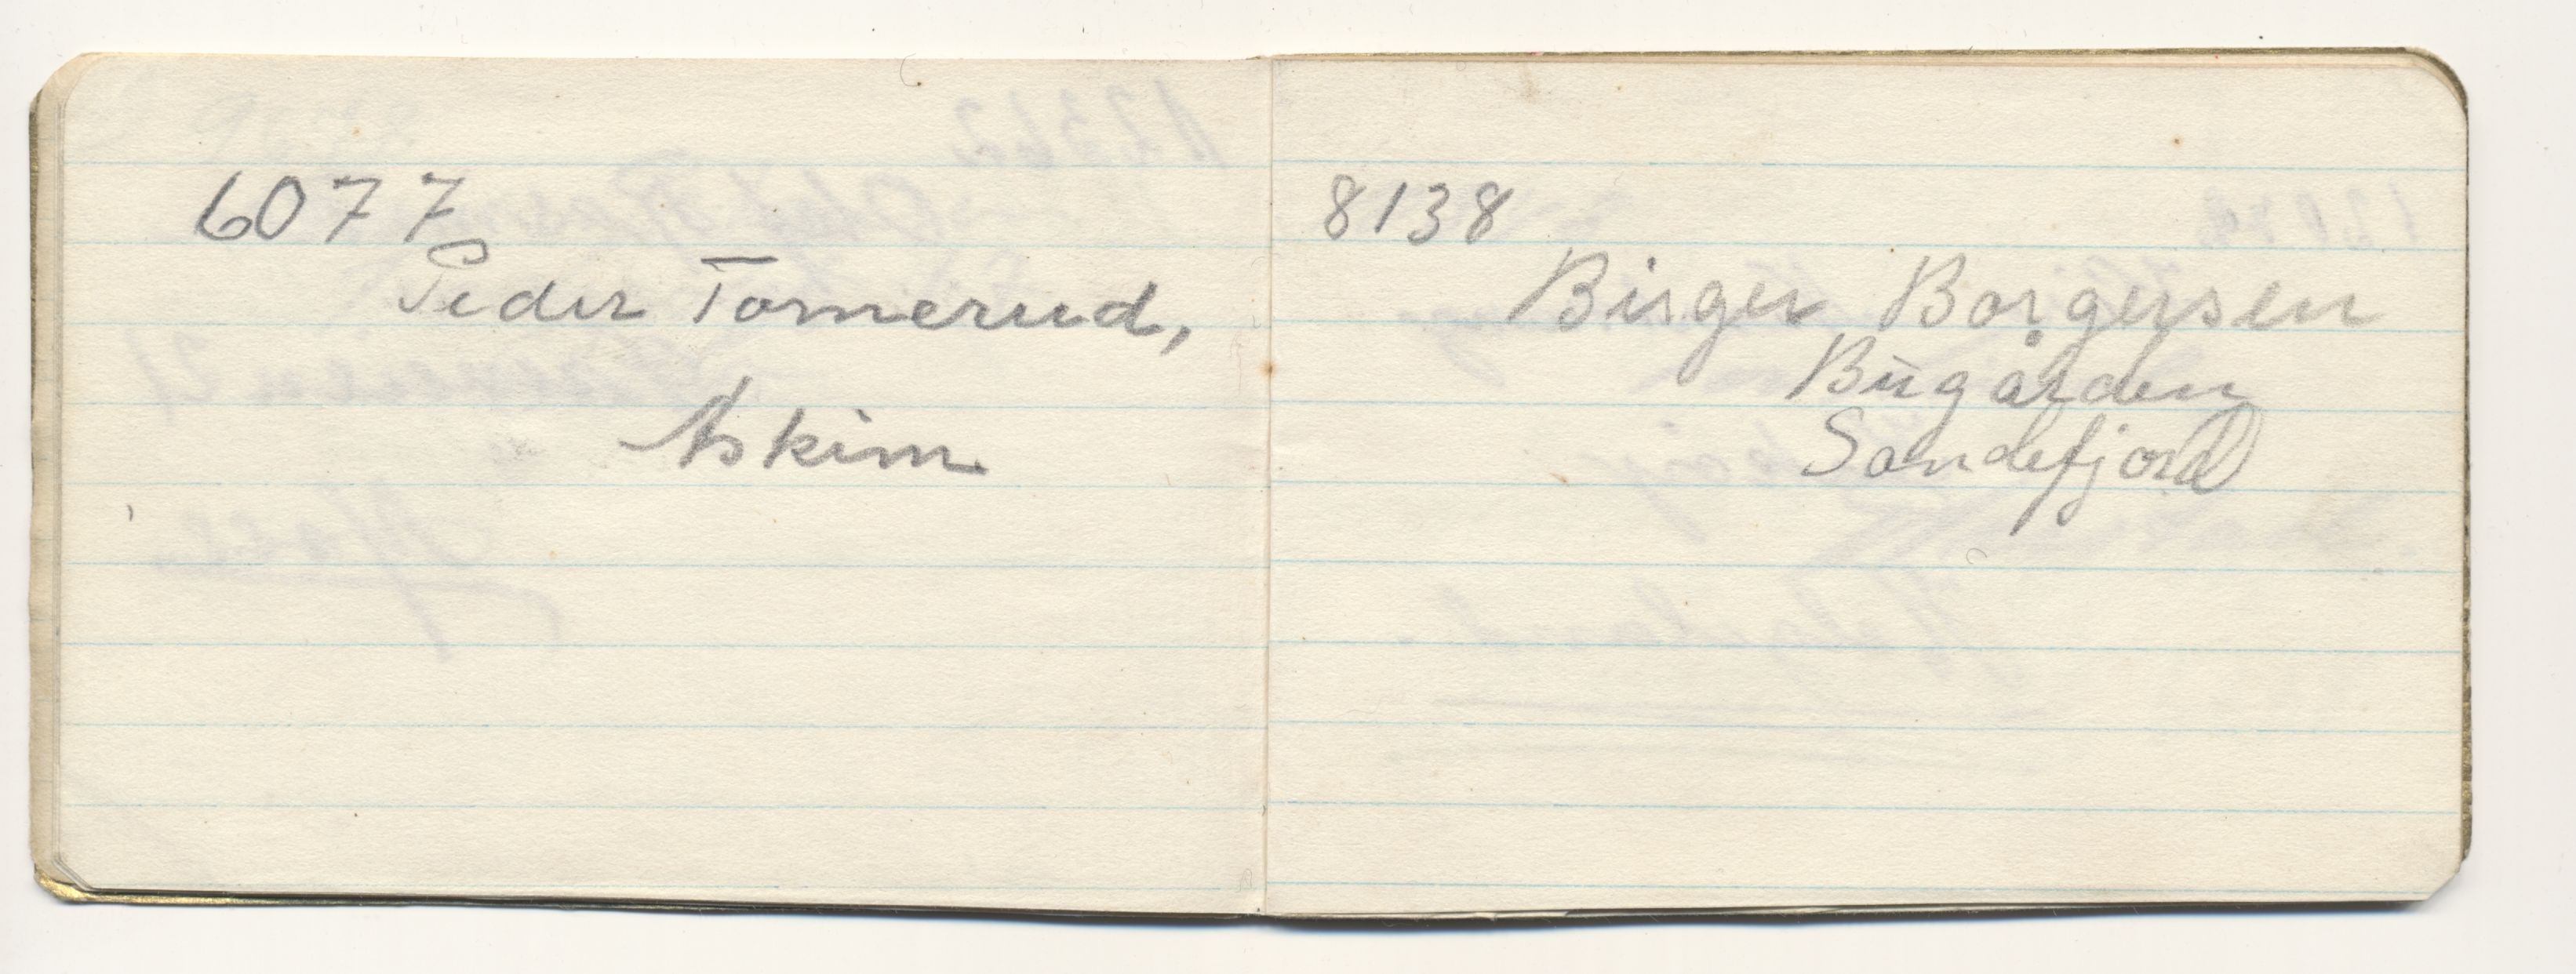 6077
Peder Tomerud,
Askim
8138
Birger Borgersen
Bugården
Sandefjord